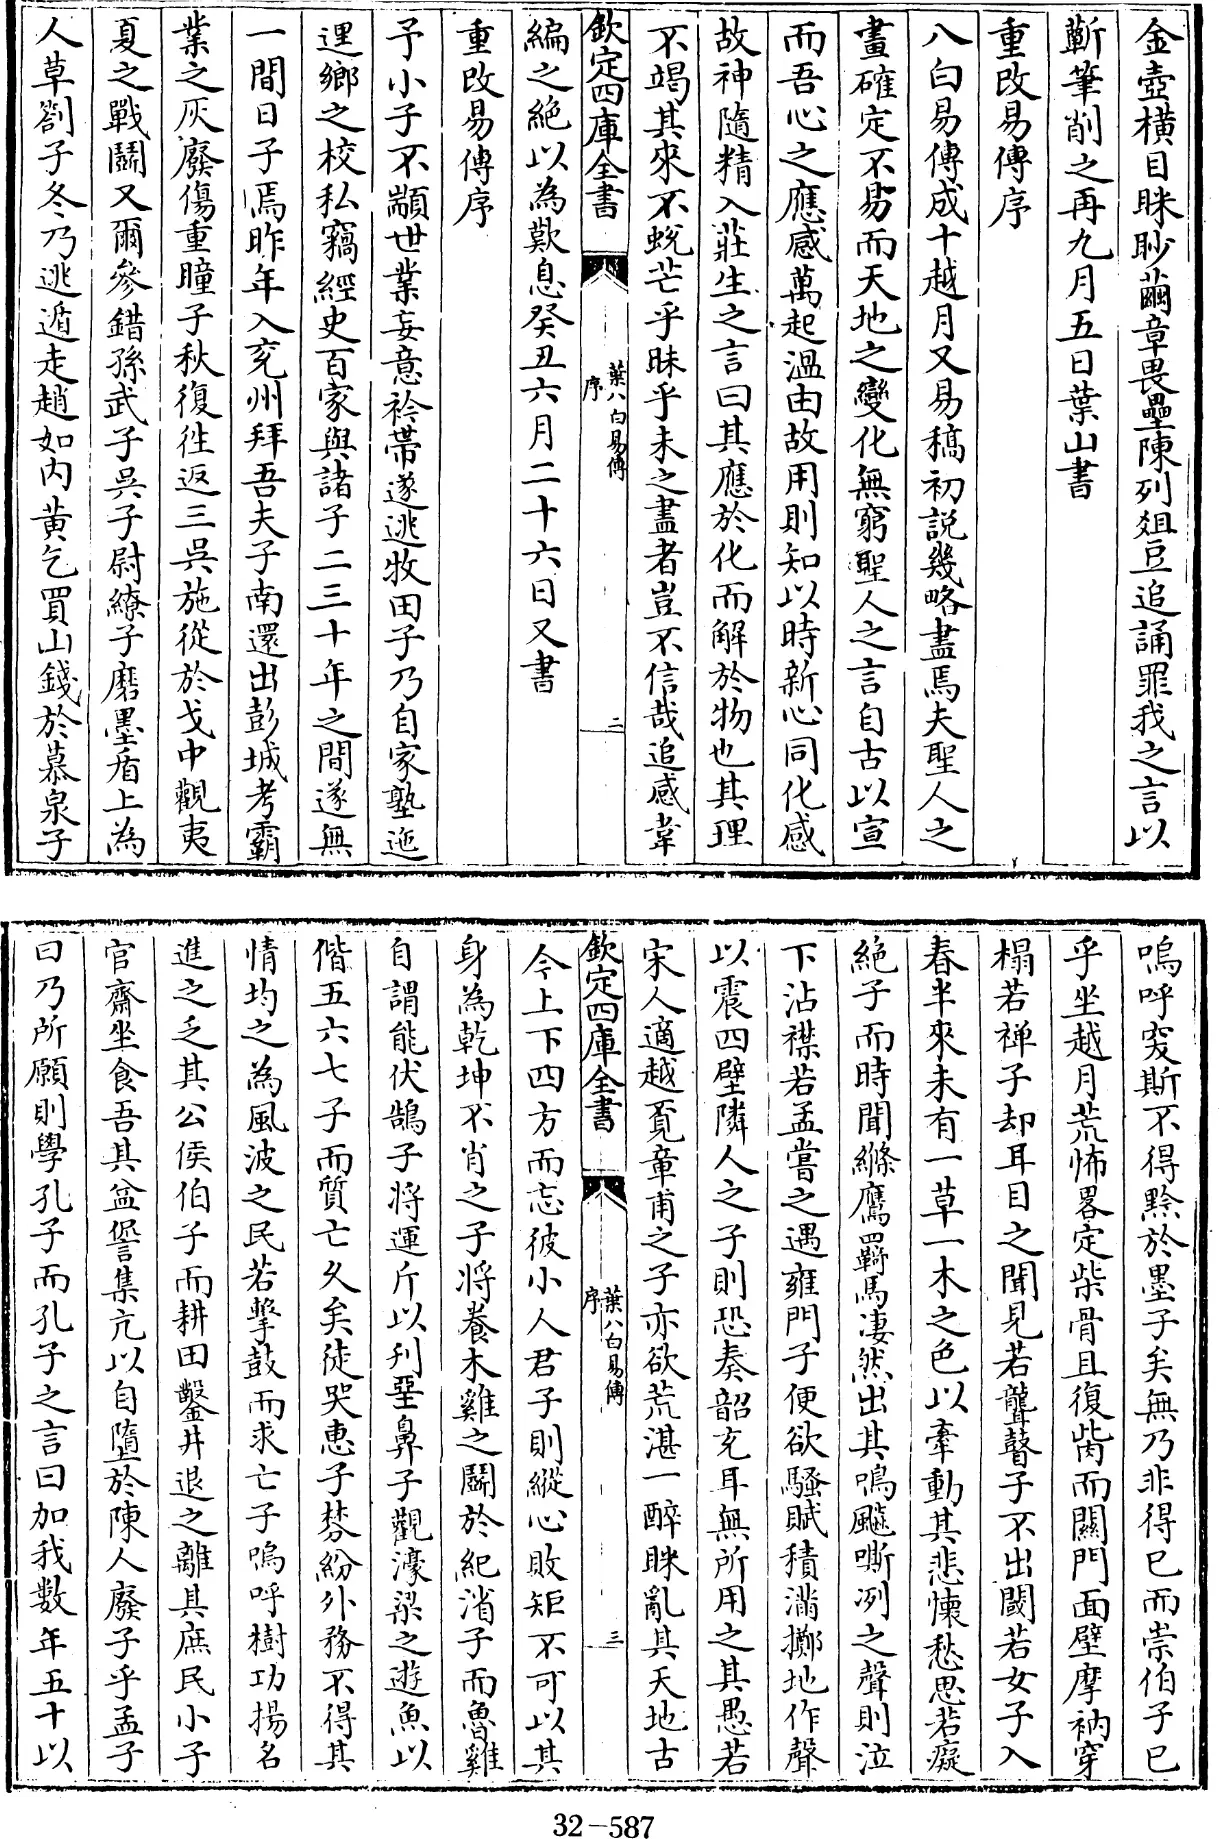 金壺橫目眯眇繭章畏壘陳列爼豆追誦罪我之言以
蘄筆削之再九月五日葉山書
重改易傳序
八白易傳成十越月又易稿初説幾略盡焉夫聖人之
畫確定不易而天地之變化無窮聖人之言自古以宣
而吾心之應感萬起溫由故用則知以時新心同化感
故神隨精入莊生之言曰其應於化而解於物也其理
不竭其來不蛻芒乎昧乎未之盡者豈不信哉追感韋
欽定四庫全書
葉八白易傳
序
二
編之絶以為歎息癸丑六月二十六日又書
重改易傳序
予小子不顓世業妄意衿帶遂逃牧田子乃自家塾迤
邐鄉之校私竊經史百家與諸子二三十年之間遂無
一間日子焉昨年入兖州拜吾夫子南還出彭城考霸
業之灰廢傷重瞳子秋復徃返三呉施從於戈中觀夷
夏之戰鬬又爾參錯孫武子呉子尉繚子磨墨盾上為
人草劄子冬乃逃遁走趙如内黄乞買山錢於慕泉子
嗚呼窽斯不得黔於墨子矣無乃非得已而崇伯子已
乎坐越月荒怖畧定柴骨且復胔而闗門面壁摩衲穿
榻若禅子却耳目之聞見若聾瞽子不出閾若女子入
春半來未有一草一木之色以牽動其悲懐愁思若癡
絶子而時聞絛鷹羈馬凄然出其鳴飈嘶冽之聲則泣
下沾襟若孟嘗之遇雍門子便欲騷賦積滿擲地作聲
以震四壁隣人之子則恐奏韶充耳無所用之其愚若
宋人適越覔章甫之子亦欲荒湛一醉眯亂其天地古
欽定四庫全書
葉八白易傳
序
三
今上下四方而忘彼小人君子則縱心敗矩不可以其
身為乾坤不肖之子將養木雞之鬬於紀渻子而魯雞
自謂能伏鵠子將運斤以刋堊鼻子觀濠梁之遊魚以
偕五六七子而質亡久矣徒哭惠子棼紛外務不得其
情均之為風波之民若擊鼓而求亡子嗚呼樹功揚名
進之乏其公侯伯子而耕田鑿井退之離其庶民小子
官齋坐食吾其盆譽集亢以自墮於陳人廢子乎孟子
曰乃所願則學孔子而孔子之言曰加我數年五十以
32-587